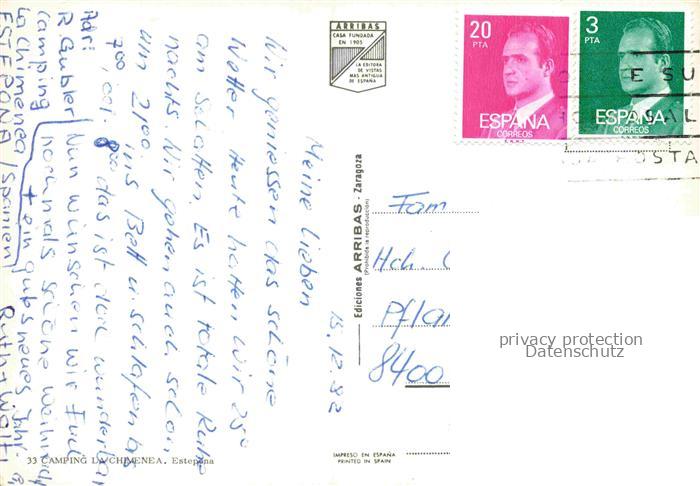 15.12.82
Meine Lieben
Wir geniessen das schöne
Wetter heute hatten wir 25°
am Schatten. Es ist totale Ruhe
nachts. Wir gehen auch schon
um 21⁰⁰ ins Bett u. schlafen bis
7⁰⁰ od. 8⁰⁰ das ist doch wunderbar
Nun wünschen wir Euch
nochmals schöne Weihnacht
+ ein gutes neues Jahr
Ruth + Wolf
Adr:
R. Gubler
Camping
La Chimenea
ESTEPONA / Spanien
ARRIBAS
CASA FUNDADA
EN 1905
LA EDITORA
DE VISTAS
MAS ANTIGUA
DE ESPAÑA
20
PTA
ESPAÑA
CORREOS
3
PTA
ESPAÑA
CORREOS
Ediciones ARRIBAS - Zaragoza
(Prohibida la reproducción)
Fam
Hch.
8400
privacy protection
Datenschutz
33 CAMPING LA CHIMENEA. Estepona
IMPRESO EN ESPAÑA
PRINTED IN SPAIN